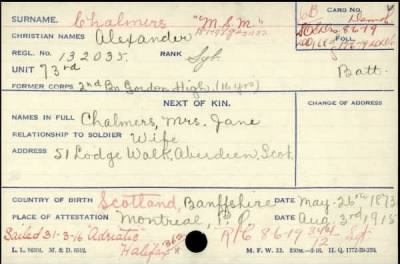 SURNAME. Chalmers "M.S.M." 6B CARD NO. 1
CHRISTIAN NAMES Alexander
REGL. NO. 132035. RANK Sgt. FOLL.
UNIT 73rd Batt.
FORMER CORPS 2nd Bn Gordon High. (16 yrs)
NEXT OF KIN. CHANGE OF ADDRESS
NAMES IN FULL Chalmers, Mrs. Jane
RELATIONSHIP TO SOLDIER Wife
ADDRESS 51 Lodge Walk, Aberdeen, Scot.
COUNTRY OF BIRTH Scotland, Banffshire DATE May-26th 1873
PLACE OF ATTESTATION Montreal, P.Q. DATE Aug. 3rd 1915
Sailed 31-3-16 "Adriatic" Halifax R/C 86-19 344 Sgt
12
L. L. M. & D. M. F. W. 22. H. Q. 1772-39-231.